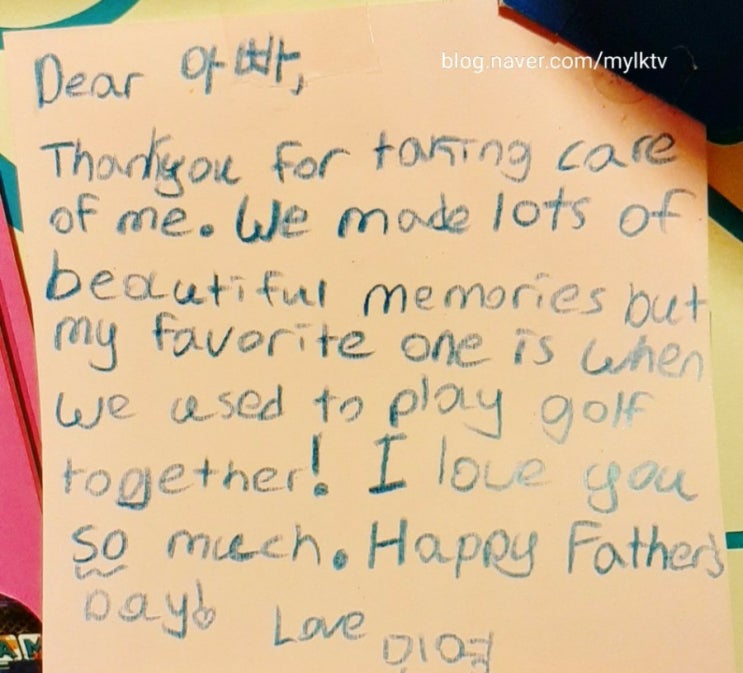 blog.naver.com/mylktv
Dear 아빠,
Thankyou for taking care
of me. We made lots of
beautiful memories but
my favorite one is when
we used to play golf
together! I love you
so much. Happy Father's
Day!
Love